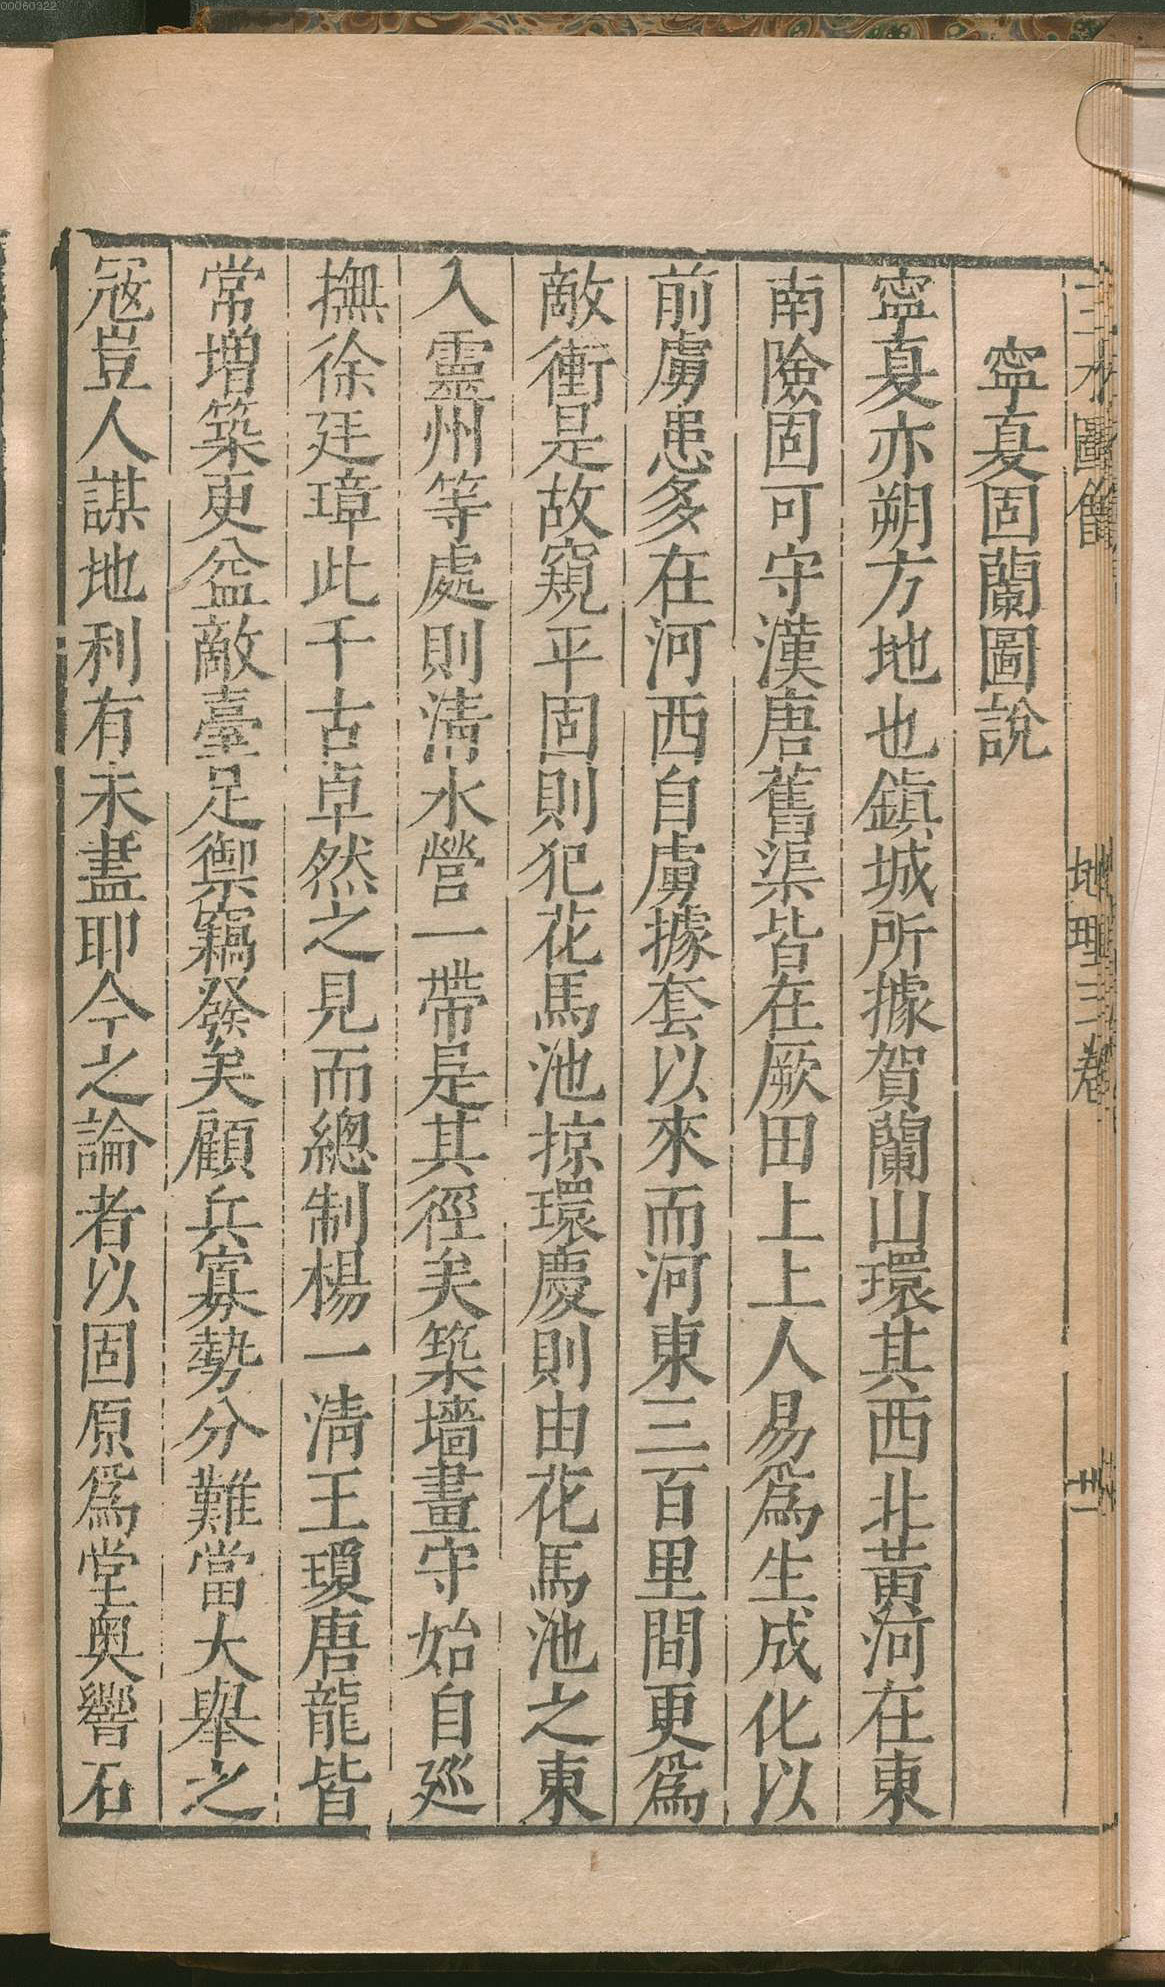 00060322
三才圖會 地理三卷
寧夏固蘭圖說
寧夏亦朔方地也鎮城所據賀蘭山環其西北黃河在東
南險固可守漢唐舊渠皆在厥田上上人易爲生成化以
前虜患多在河西自虜據套以來而河東三百里間更爲
敵衝是故窺平固則犯花馬池掠環慶則由花馬池之東
入靈州等處則清水營一帶是其徑矣築墻畫守始自廵
撫徐廷璋此千古卓然之見而總制楊一清王瓊唐龍皆
常增築更益敵臺足禦竊發矣顧兵寡勢分難當大舉之
寇豈人謀地利有未盡耶今之論者以固原爲堂奧響石